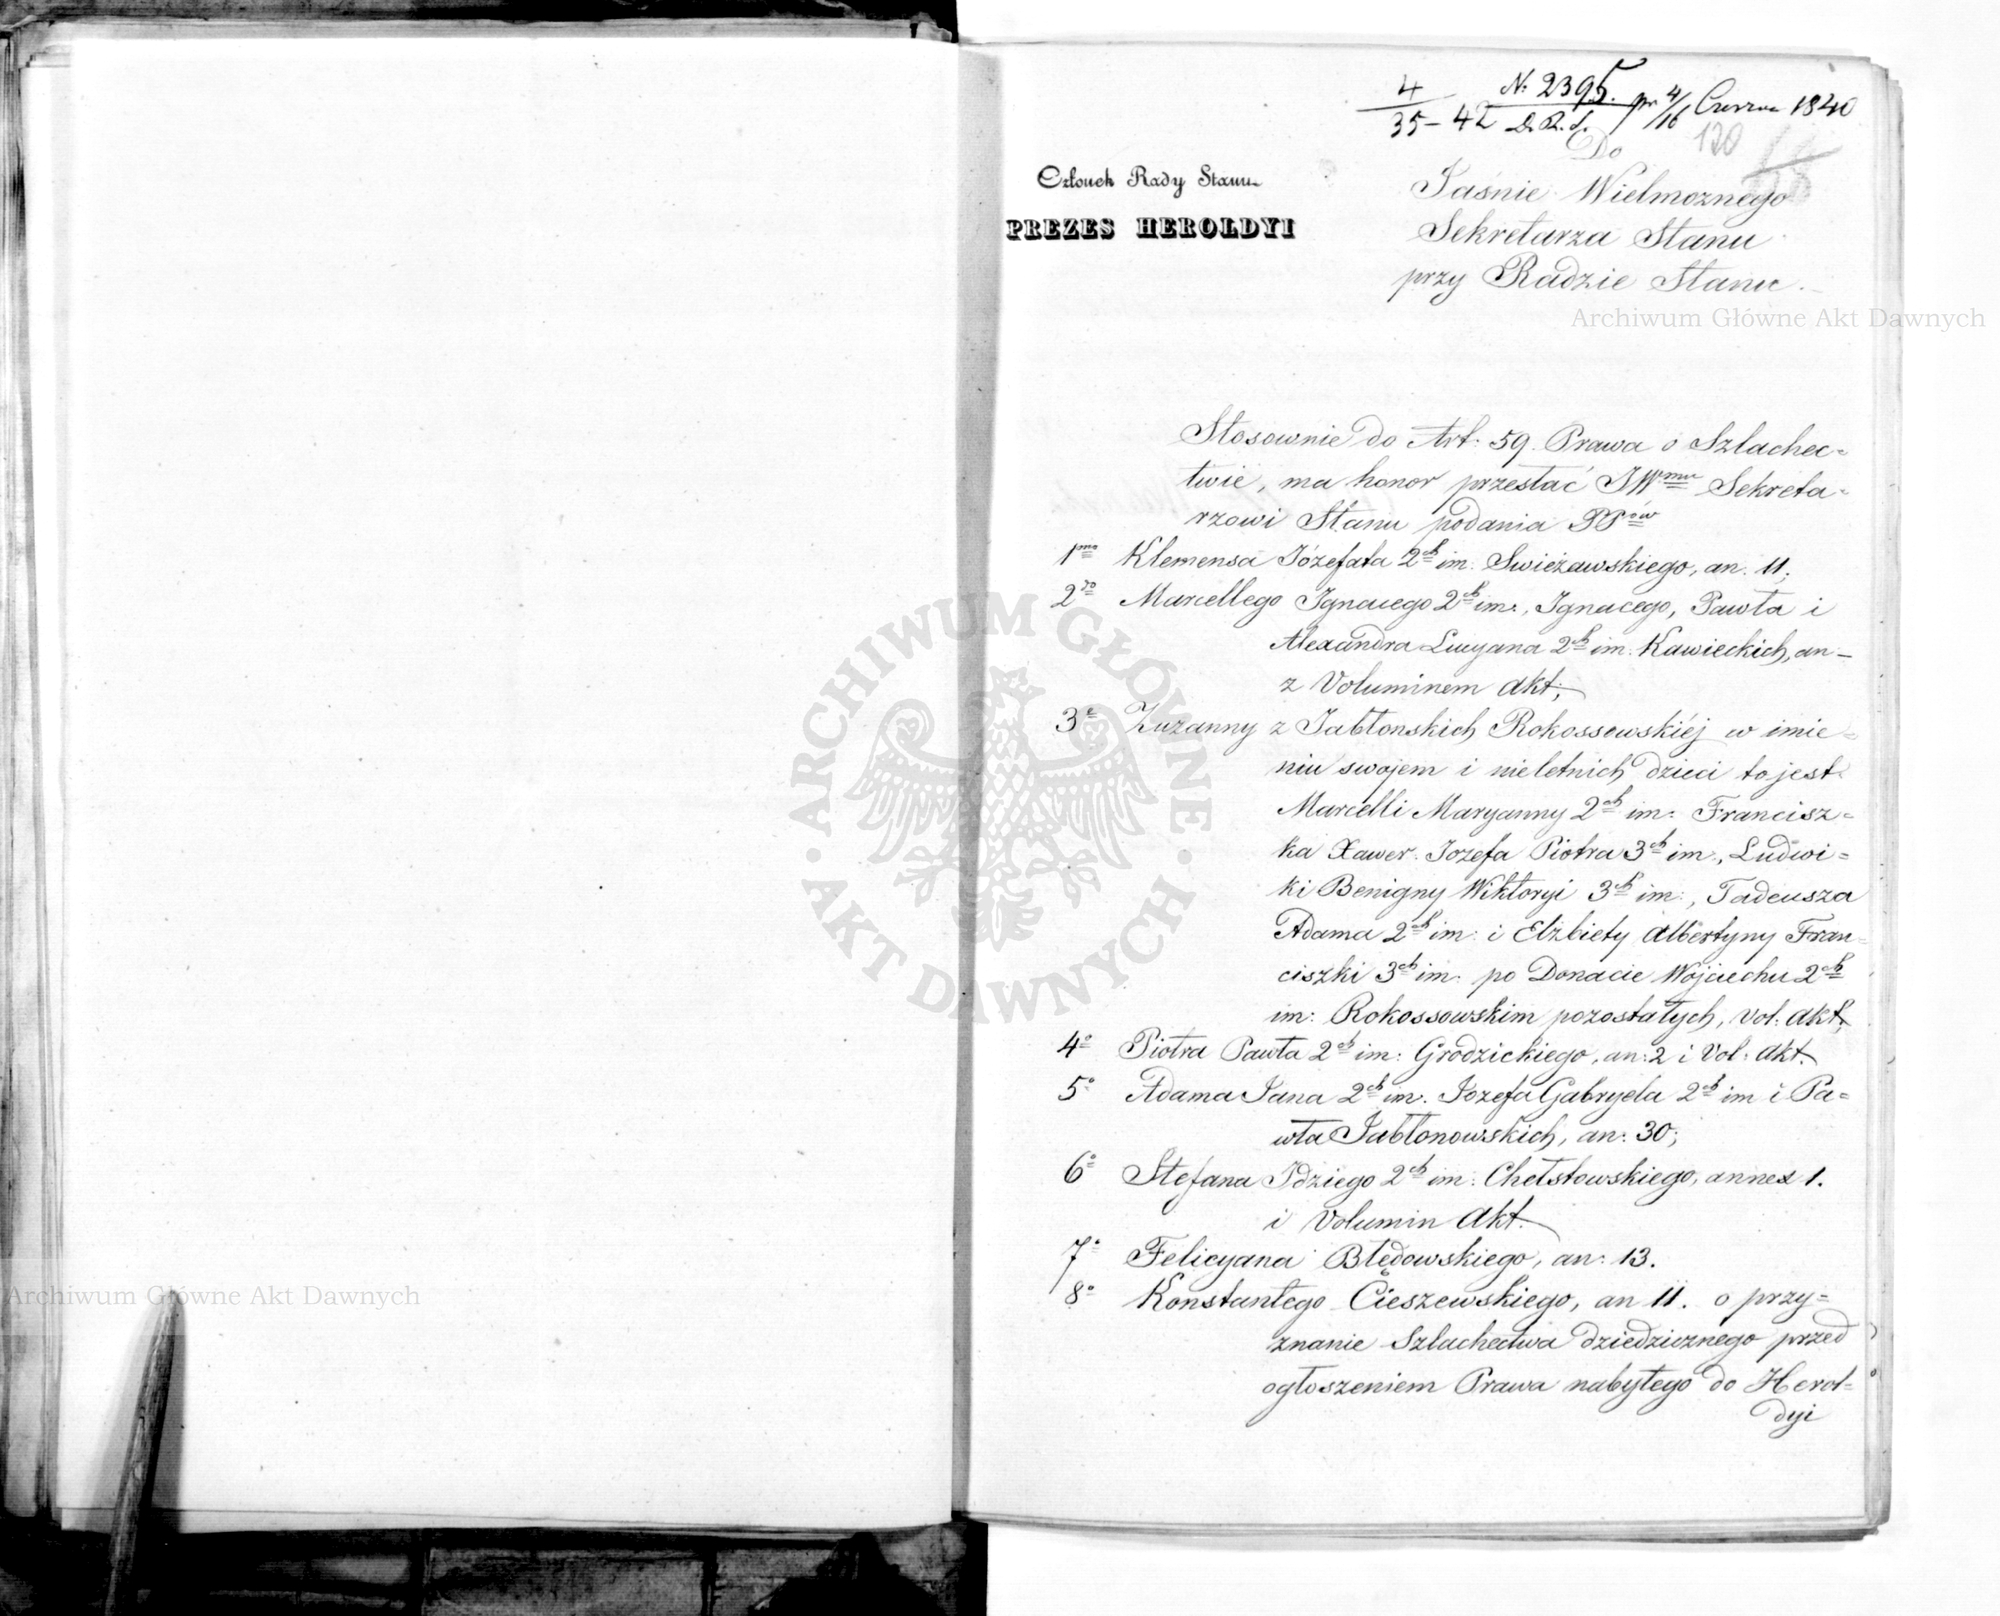 4 № 2395. pr 4/16 Czerwca 1840
35–42 D. R. S.
120
Do
Jaśnie Wielmożnego
Sekretarza Stanu
przy Radzie Stanu.
Członek Rady Stanu
PREZES HEROLDYI
Archiwum Główne Akt Dawnych
Stosownie do Art: 59. Prawa o Szlachec=
twie, ma honor przesłać JWmu Sekreta=
rzowi Stanu podania PPów
1mo Klemensa Józefata 2ch im. Swieżawskiego, an. 11;
2do Marcellego Ignacego 2ch im., Ignacego, Pawła i
Alexandra Lucyana 2ch im. Kawieckich, an–
z Voluminem Akt;
3o Zuzanny z Jabłonskich Rokossowskiéj w imie=
niu swojem i nieletnich dzieci to jest.
Marcelli Maryanny 2ch im: Francisz=
ka Xawer. Jozefa Piotra 3ch im., Ludwi=
ki Benigny Wiktoryi 3ch im:, Tadeusza
Adama 2ch im: i Elżbiety Albertyny Fran=
ciszki 3ch im: po Donacie Wojciechu 2ch
im: Rokossowskim pozostałych, vol: Akt;
4o Piotra Pawła 2ch im: Grodzickiego, an: 2 i Vol: Akt.
5o Adama Jana 2ch im. Jozefa Gabryela 2ch im i Pa=
wła Jabłonowskich, an: 30;
6o Stefana Idziego 2ch im: Chełstowskiego, annex 1.
i Volumin Akt.
7o Felicyana Błędowskiego, an: 13.
8o Konstantego Cieszewskiego, an 11. o przy=
znanie Szlachectwa dziedzicznego przed
ogłoszeniem Prawa nabytego do Herol=
dyi
ARCHIWUM GŁÓWNE AKT DAWNYCH
Archiwum Główne Akt Dawnych